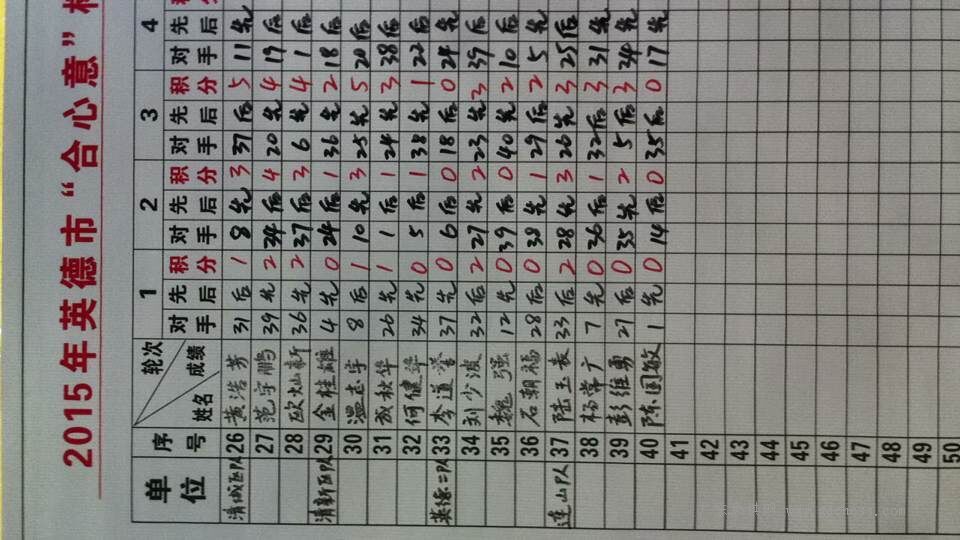 2015年英德市“合心意”
单位 序号 姓名 成绩 轮次 1 2 3 4
对手 先后 积分 对手 先后 积分 对手 先后 积分 对手 先后
清城区队 26 黄浩芳 31 后 1 8 先 3 37 后 5 11 先
27 范宇鹏 39 先 2 34 后 4 20 先 4 19 后
28 欧灿新 36 先 2 37 后 3 6 先 4 1 后
清新区队 29 金桂雄 4 先 0 24 后 1 36 先 2 18 后
30 温志宇 8 后 1 10 先 3 25 先 5 20 后
31 秋华 26 先 1 1 后 1 24 先 3 38 先
32 何健华 34 先 0 5 后 1 38 先 1 22 后
英德二队 33 李道誉 37 先 0 6 后 0 18 后 0 24 先
34 刘少波 32 后 2 27 先 2 23 先 3 39 后
35 魏强 12 先 0 39 后 0 40 先 2 10 后
36 石朝福 28 后 0 38 先 1 29 后 2 5 先
连山队 37 陆玉表 33 后 2 28 先 3 26 先 3 25 后
38 杨常广 7 先 0 36 后 1 32 后 3 31 先
39 彭维勇 27 后 0 35 先 2 5 后 3 34 先
40 陈国敏 1 先 0 14 后 0 35 后 0 17 先
41
42
43
44
45
46
47
48
49
50